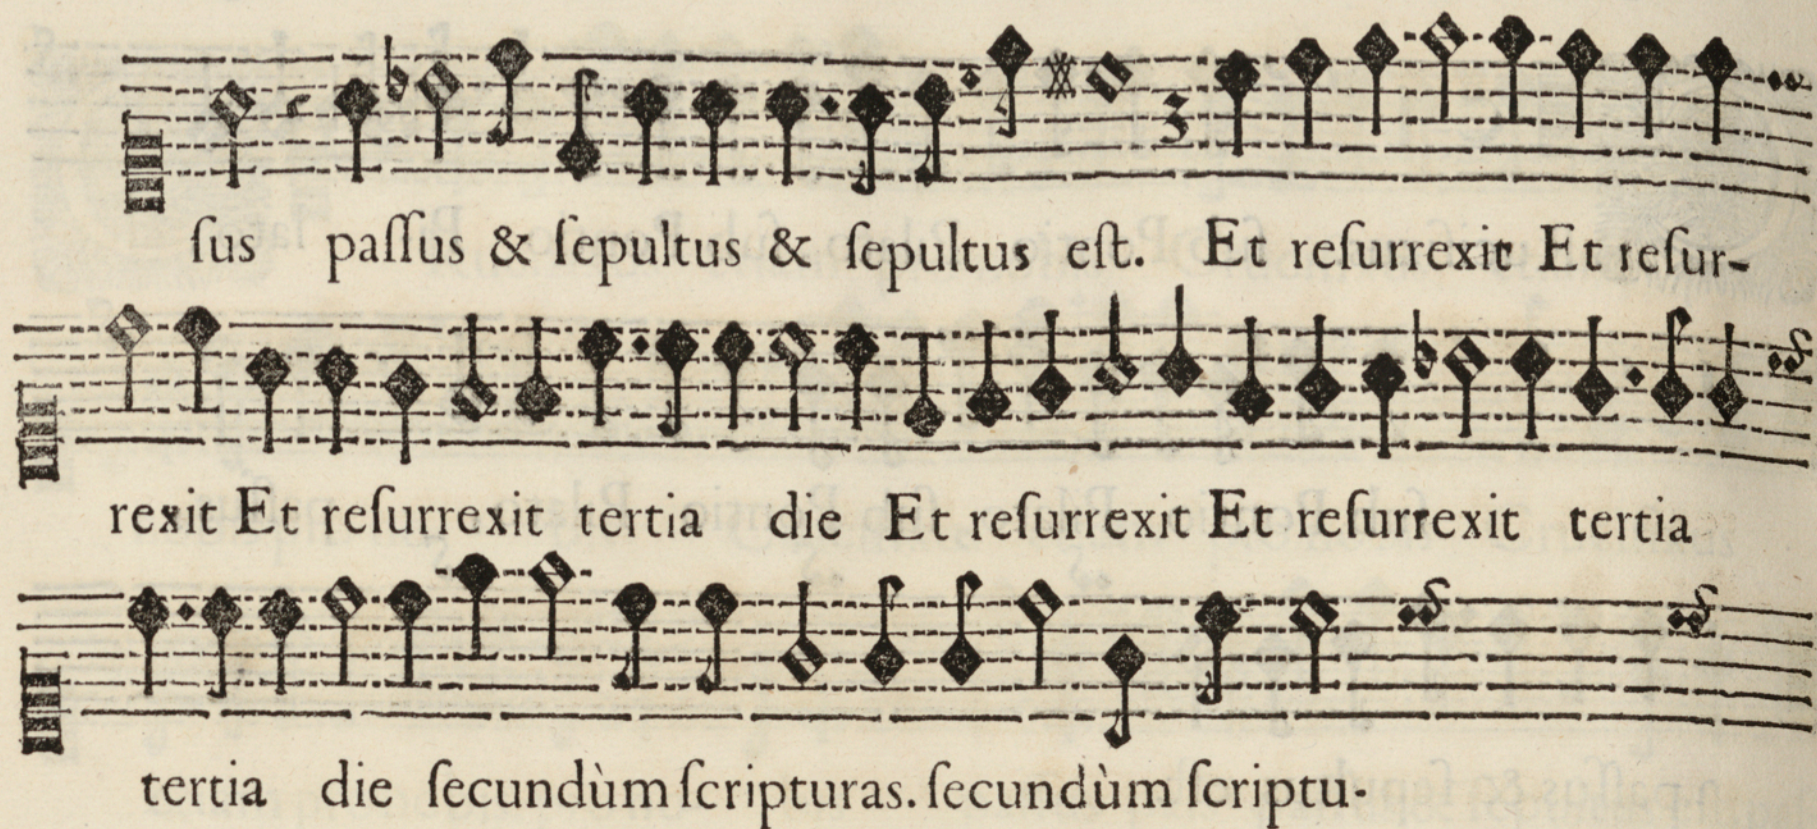 ſus paſſus & ſepultus & ſepultus eſt. Et reſurrexit Et reſur-
rexit Et reſurrexit tertia die Et reſurrexit Et reſurrexit tertia
tertia die ſecundùm ſcripturas. ſecundùm ſcriptu-